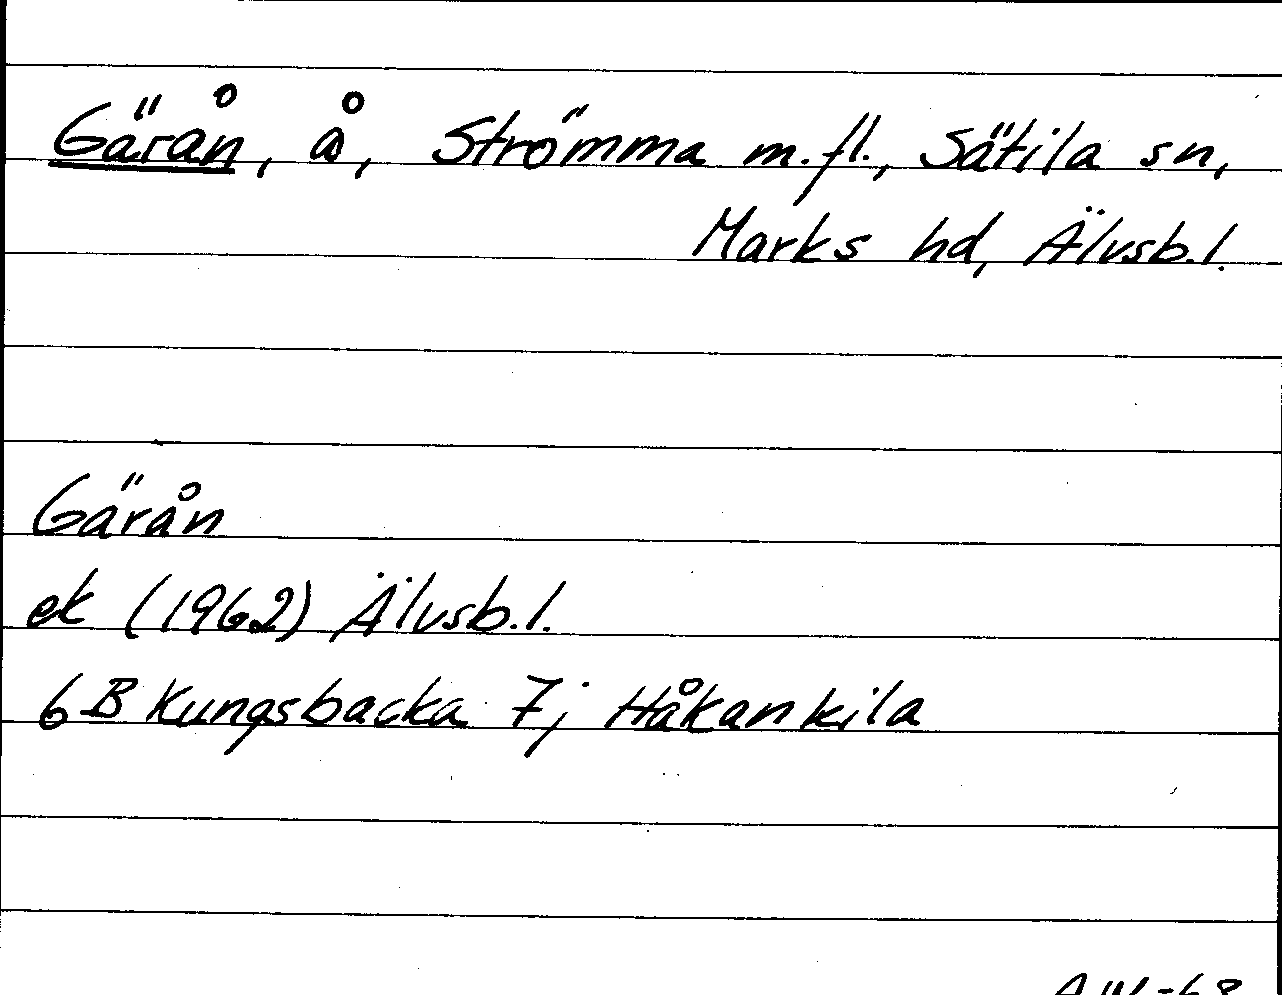 Gärån, å, Strömma m.fl., Sätila sn,
Marks hd, Älvsb.l.
Gärån
ek (1962) Älvsb.l.
6B Kungsbacka 7j Håkankila